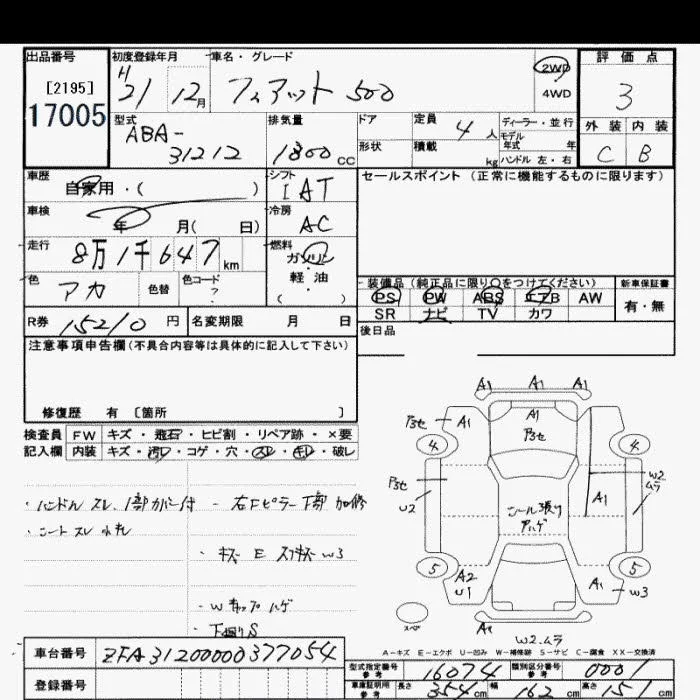 出品番号 初度登録年月 車名・グレード 2WD 評価点
[2195] H 21 12月 フィアット 500 4WD 3
17005 型式 排気量 ドア 定員 4人 ディーラー・並行 外装 内装
ABA- モデル
31212 1300 cc 形状 積載 kg 年式 年 ハンドル 左・右 C B
車歴 自家用・( ) シフト IAT セールスポイント (正常に機能するものに限ります)
車検 年 月( 日) 冷房 AC
走行 8万1千647km 燃料 ガソリン
色 アカ 色替 色コード 軽・油 ( )
装備品(純正品に限り○をつけてください) 新車保証書
PS PW ABS エアB AW 有・無
SR ナビ TV カワ
R券 15210円 名変期限 月 日 後日品
注意事項申告欄(不具合内容等は具体的に記入して下さい)
修復歴 有 〔箇所 〕
検査員 FW キズ・飛石・ヒビ割・リペア跡・×要
記入欄 内装 キズ・汚レ・コゲ・穴・スレ・キレ・破レ
A1 A1 A1
A1 A1
4 4
W2 ムラ
U2 A1
5 5
A2 U1 A1 W3
スペア A1
W2.ムラ
・ハンドル スレ、1部カバー付 - 右Fピラー下部 加修
・シート スレ
・キズ E W3
・Wキャップハゲ
・下廻りS
A-キズ E-エクボ U-凹ミ W-補修跡 S-サビ C-腐食 XX-交換済
車台番号 ZFA31200000377054
型式指定番号 参考 16074 類別区分番号 参考 0001
登録番号 車庫証明用 参考 長さ 354cm 幅 162cm 高さ 151cm